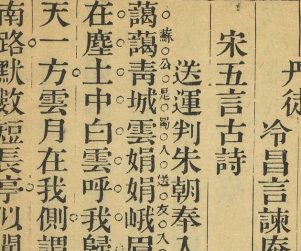 丹徒
冷昌言諫庵
宋五言古詩
送運判朱朝奉入
蘇公是蜀人送友人入
藹藹靑城雲娟娟峨眉
在塵土中白雲呼我歸
天一方雲月在我側謂
南路默數短長亭似聞